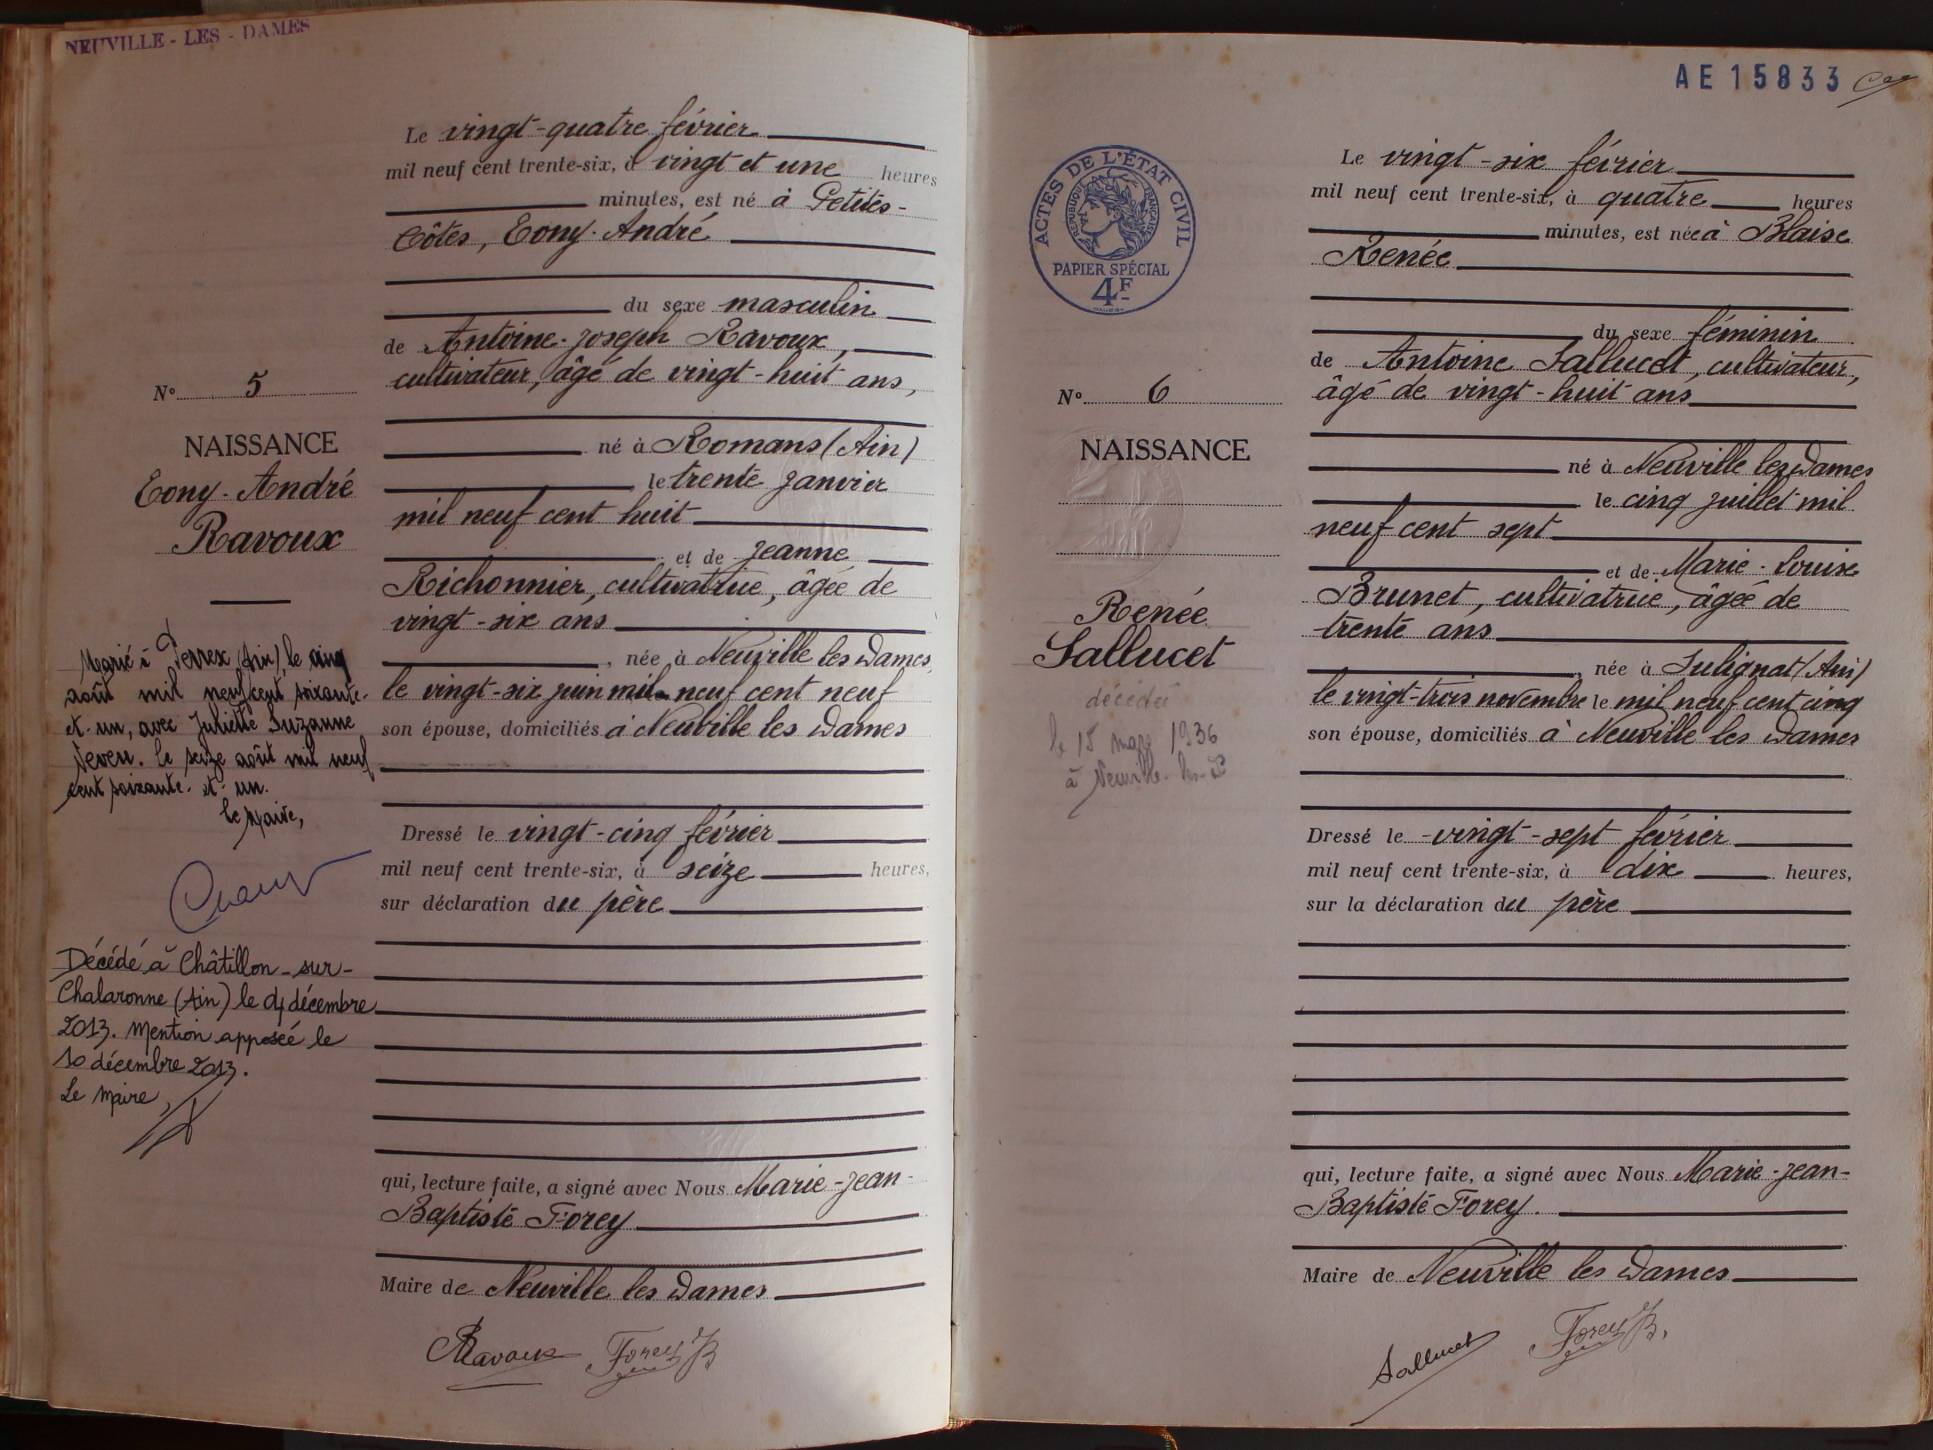 NEUVILLE - LES - DAMES
Le vingt-quatre février
mil neuf cent trente-six, à vingt et une heures
minutes, est né à Petites-
Côtes, Tony-André
du sexe masculin
de Antoine-Joseph Ravoux,
cultivateur, âgé de vingt-huit ans,
né à Romans (Ain)
le trente janvier
mil neuf cent huit
et de Jeanne
Richonnier, cultivatrice, âgée de
vingt-six ans
, née à Neuville les Dames,
le vingt-six juin mil neuf cent neuf
son épouse, domiciliés à Neuville les Dames
Dressé le vingt-cinq février
mil neuf cent trente-six, à seize heures,
sur déclaration du père
qui, lecture faite, a signé avec Nous Marie-Jean-
Baptiste Forey
Maire de Neuville les Dames
Ravoux Forey JB
N° 5
NAISSANCE
Tony-André
Ravoux
Marié à Perrex (Ain), le cinq
août mil neuf cent soixante-
et-un, avec Juliette Suzanne
Neveu. le seize août mil neuf
cent soixante-et-un.
le Maire,
Décédé à Châtillon-sur-
Chalaronne (Ain) le 04 décembre
2013. Mention apposée le
10 décembre 2013.
Le Maire,
AE 15833
ACTES DE L'ÉTAT CIVIL
REPUBLIQUE FRANÇAISE
PAPIER SPÉCIAL
4F
Le vingt-six février
mil neuf cent trente-six, à quatre heures
minutes, est née à Blaise
Renée
du sexe féminin
de Antoine Sallucet, cultivateur,
âgé de vingt-huit ans
né à Neuville les Dames
le cinq juillet mil
neuf cent sept
et de Marie-Louise
Brunet, cultivatrice, âgée de
trente ans
, née à Sulignat (Ain)
le vingt-trois novembre le mil neuf cent cinq
son épouse, domiciliés à Neuville les Dames
Dressé le vingt-sept février
mil neuf cent trente-six, à dix heures,
sur la déclaration du père
qui, lecture faite, a signé avec Nous Marie-Jean-
Baptiste Forey.
Maire de Neuville les Dames
Sallucet Forey JB.
N° 6
NAISSANCE
Renée
Sallucet
décédée
le 15 mars 1936
à Neuville-les-D